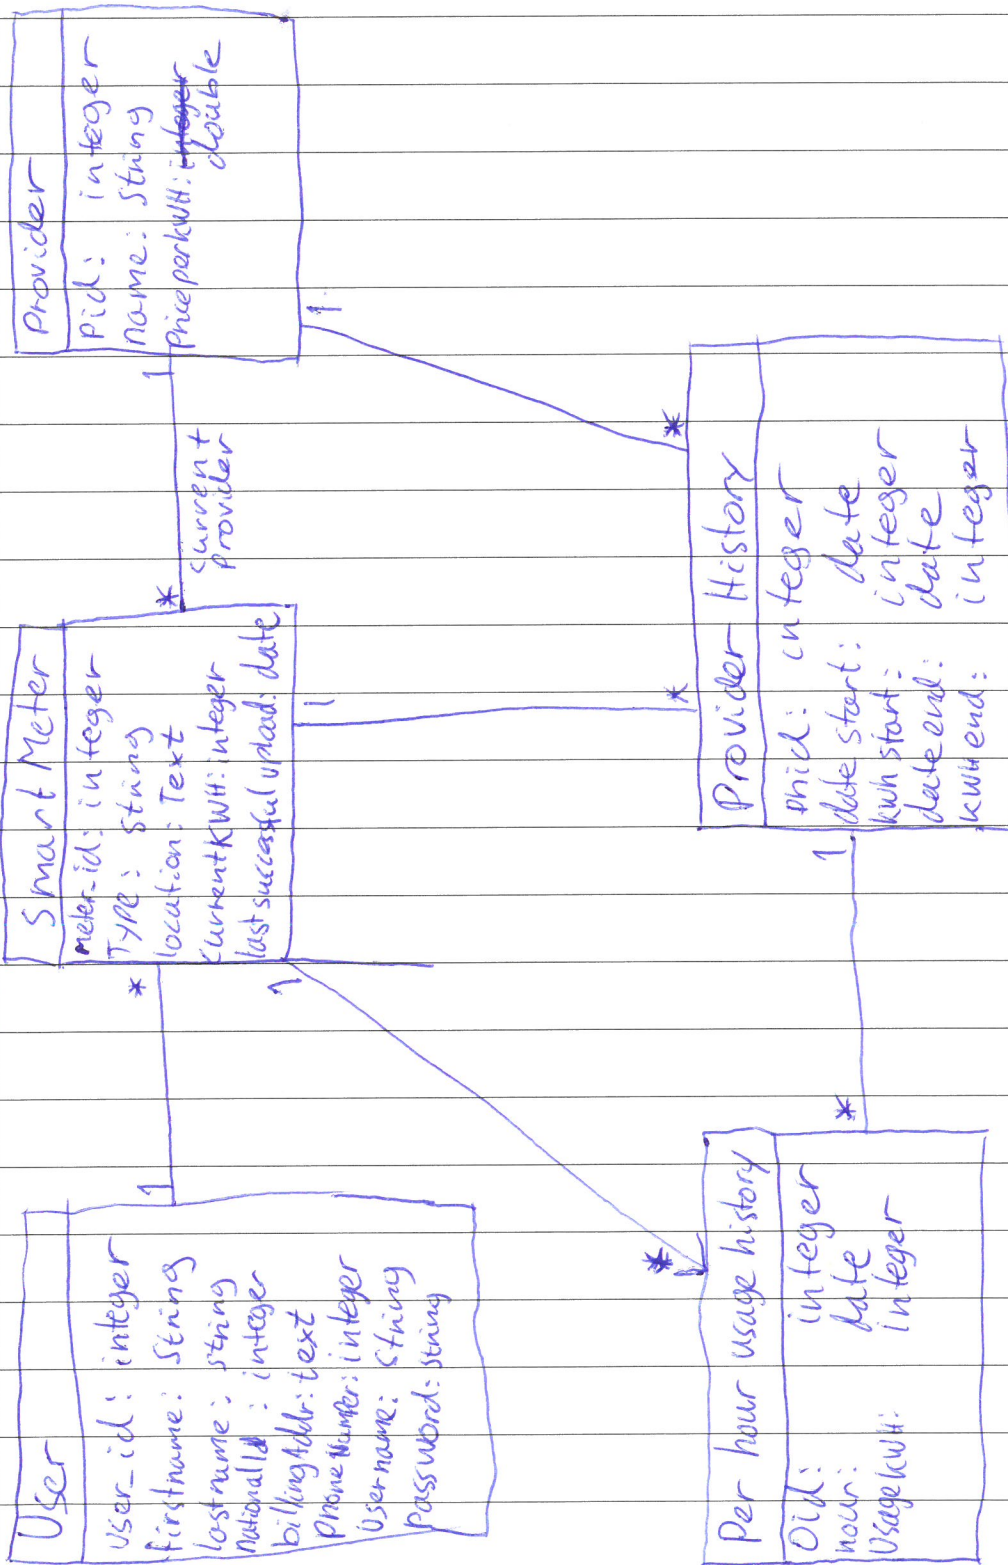 User
user_id: integer
firstname: String
lastname: string
NationalId: integer
billingAddr: text
PhoneNumber: integer
Username: String
Password: string
1
*
Smart Meter
meter_id: integer
Type: String
location: Text
CurrentKWH: integer
last successful upload: date
*
1
Current
Provider
Provider
Pid: integer
name: String
PriceperkWH: integer
double
1
*
1
*
1
*
Per hour usage history
Oid: integer
hour: date
UsagekWH: integer
*
1
Provider History
phid: integer
date start: date
kwh start: integer
date end: date
KWH end: integer